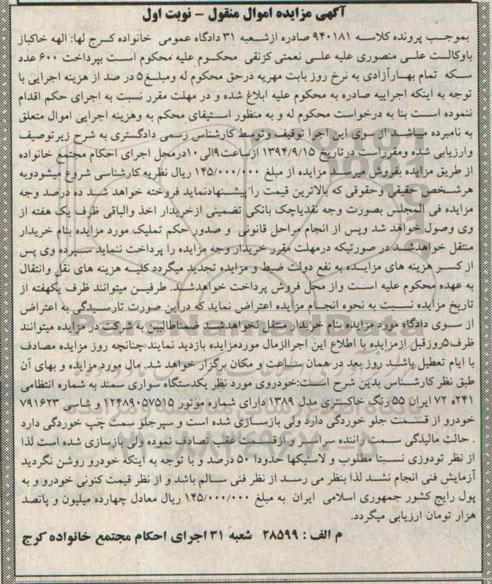 آگهی مزایده اموال منقول – نوبت اول
بموجب پرونده کلاسه ۹۴۰۱۸۱ صادره ازشعبه ۳۱ دادگاه عمومی خانواده کرج لها: الهه خاکباز
باوکالت علی منصوری علیه علی نعمتی کزنقی محکوم علیه محکوم است بپرداخت ۶۰۰ عدد
سکه تمام بهارآزادی به نرخ روز بابت مهریه درحق محکوم له ومبلغ۵ در صد از هزینه اجرایی با
توجه به اینکه اجراییه صادره به محکوم علیه ابلاغ شده و در مهلت مقرر نسبت به اجرای حکم اقدام
ننموده است بنا به درخواست محکوم له و به منظور استیفای محکم به وهزینه اجرایی اموال متعلق
به نامبرده میباشد از سوی این اجرا توقیف وتوسط کارشناس رسمی دادگستری به شرح زیرتوصیف
وارزیابی شده ومقرراست در تاریخ ۱۳۹۴/۹/۱۵ ازساعت۹الی۱۰درمحل اجرای احکام مجتمع خانواده
از طریق مزایده بفروش میرسد مزایده از مبلغ ۱۴۵/۰۰۰/۰۰۰ ریال نظریه کارشناسی شروع میشودوبه
هرشخص حقیقی وحقوقی که بالاترین قیمت را پیشنهادنماید فروخته خواهد شد ده درصد وجه
مزایده فی المجلس بصورت وجه نقدیاچک بانکی تضمینی ازخریدار اخذ والباقی ظرف یک هفته از
وی وصول خواهد شد وپس از انجام مراحل قانونی و صدور حکم تملیک مورد مزایده بنام خریدار
منتقل خواهدشد در صورتیکه درمهلت مقرر خریدار وجه مزایده را پرداخت ننماید سپرده وی پس
از کسر هزینه های مزایده به نفع دولت ضبط و مزایده تجدید میگردد کلیه هزینه های نقل وانتقال
به عهده محکوم علیه است واز محل فروش پرداخت خواهدشد. طرفین میتوانند ظرف یکهفته از
تاریخ مزایده نسبت به نحوه انجام مزایده اعتراض نماید که دراین صورت تارسیدگی به اعتراض
از سوی دادگاه مورد مزایده بنام خریدار منتقل نخواهدشد ضمناطالبین به شرکت در مزایده میتوانند
ظرف۵روزقبل ازمزایده با اطلاع این اجراازمال موردمزایده بازدید نمایند چنانچه روز مزایده مصادف
با ایام تعطیل باشد روز بعد در همان ساعت و مکان برگزار خواهد شد. مال مورد مزایده و بهای آن
طبق نظر کارشناس بدین شرح است:خودروی مورد نظر یکدستگاه سواری سمند به شماره انتظامی
۲۴۱ه ۷۲ ایران ۵۵ رنگ خاکستری مدل ۱۳۸۹ دارای شماره موتور ۱۲۴۸۹۰۵۷۵۱۵ و شاسی ۷۹۱۶۲۳
خودرو از قسمت جلو خوردگی دارد ولی بازسازی شده است و سپرجلو سمت چپ خوردگی دارد
. حالت مالیدگی سمت راننده سراسر و ازقسمت عقب تصادف نموده ولی بازسازی شده است لذا
از نظر تودوزی نسبتا مطلوب و لاستیکها حدودا ۵۰ درصد و با توجه به اینکه خودرو روشن نگردید
آزمایش فنی انجام نشد لذا بنظر می رسد از نظر فنی سالم باشد و از نظر قیمت کنونی خودرو و به
پول رایج کشور جمهوری اسلامی ایران به مبلغ ۱۴۵/۰۰۰/۰۰۰ ریال معادل چهارده میلیون و پانصد
هزار تومان ارزیابی میگردد.
م الف : ۲۸۵۹۹ شعبه ۳۱ اجرای احکام مجتمع خانواده کرج